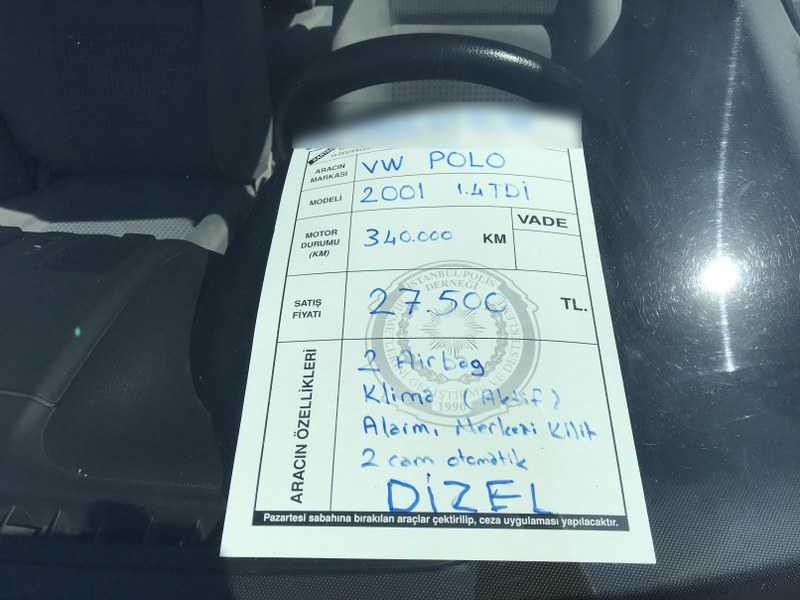 ARACIN MARKASI VW POLO
MODELİ 2001 1.4 TDİ
MOTOR DURUMU (KM) 340.000 KM VADE
SATIŞ FİYATI 27.500 TL.
ARACIN ÖZELLİKLERİ
2 Airbag
Klima (Aktif)
Alarm, Merkezi Kilit
2 cam otomatik
DİZEL
İSTANBUL POLİS
DERNEĞİ
1990
Pazartesi sabahına bırakılan araçlar çektirilip, ceza uygulaması yapılacaktır.